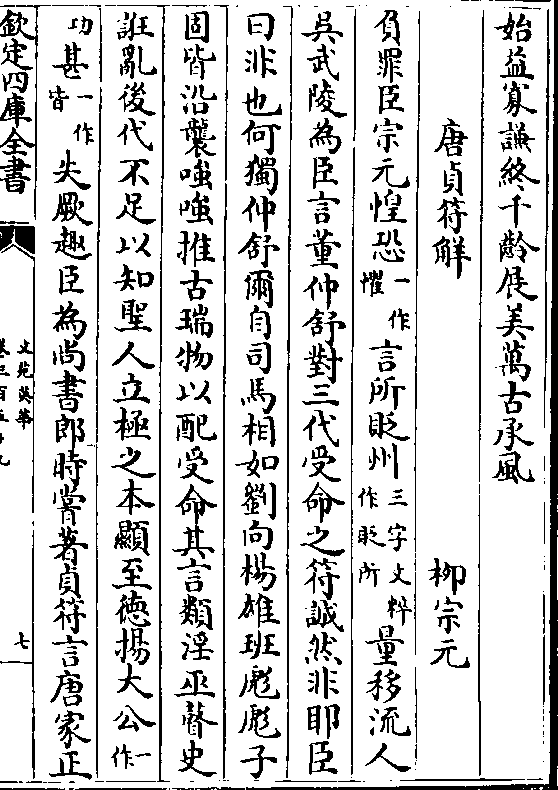 始益寡謙終千齡展美萬古承風
唐貞符解　柳宗元
負罪臣宗元惶恐一作懼言所貶州三字文粹作貶所量移流人
吳武陵為臣言董仲舒對三代受命之符誠然非耶臣
曰非也何獨仲舒爾自司馬相如劉向楊雄班彪彪子
固皆沿襲嗤嗤推古瑞物以配受命其言類淫巫瞽史
誑亂後代不足以知聖人立極之本顯至德揚大公一作
功甚一作皆失厥趣臣為尚書郎時嘗著貞符言唐家正
欽定四庫全書
文苑英華
卷三百五十九
七